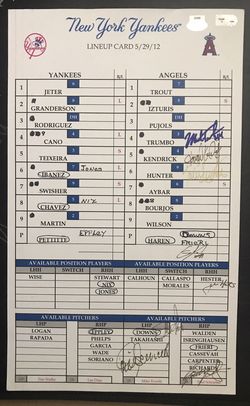 New York Yankees
LINEUP CARD 5/29/12
YANKEES ANGELS
1 JETER 1 TROUT
2 GRANDERSON L 2 IZTURIS S
3 RODRIGUEZ DH 3 PUJOLS DH
4 CANO L 4 TRUMBO
5 TEIXEIRA S 5 KENDRICK
6 IBANEZ 7 JONES 6 HUNTER
7 SWISHER S 7 AYBAR S
8 CHAVEZ NIX 8 BOURJOS
9 MARTIN 9 WILSON
P PETTITTE EPPLEY P HAREN DOWNS FRIERI
AVAILABLE POSITION PLAYERS AVAILABLE POSITION PLAYERS
LHH SWITCH RHH LHH SWITCH RHH
WISE STEWART CALHOUN CALLASPO HESTER
NIX MORALES
JONES
AVAILABLE PITCHERS AVAILABLE PITCHERS
LHP RHP LHP RHP
LOGAN EPPLEY DOWNS WALDEN
RAPADA PHELPS TAKAHASHI ISRINGHAUSEN
GARCIA FRIERI
WADE CASSEVAH
SORIANO CARPENTER